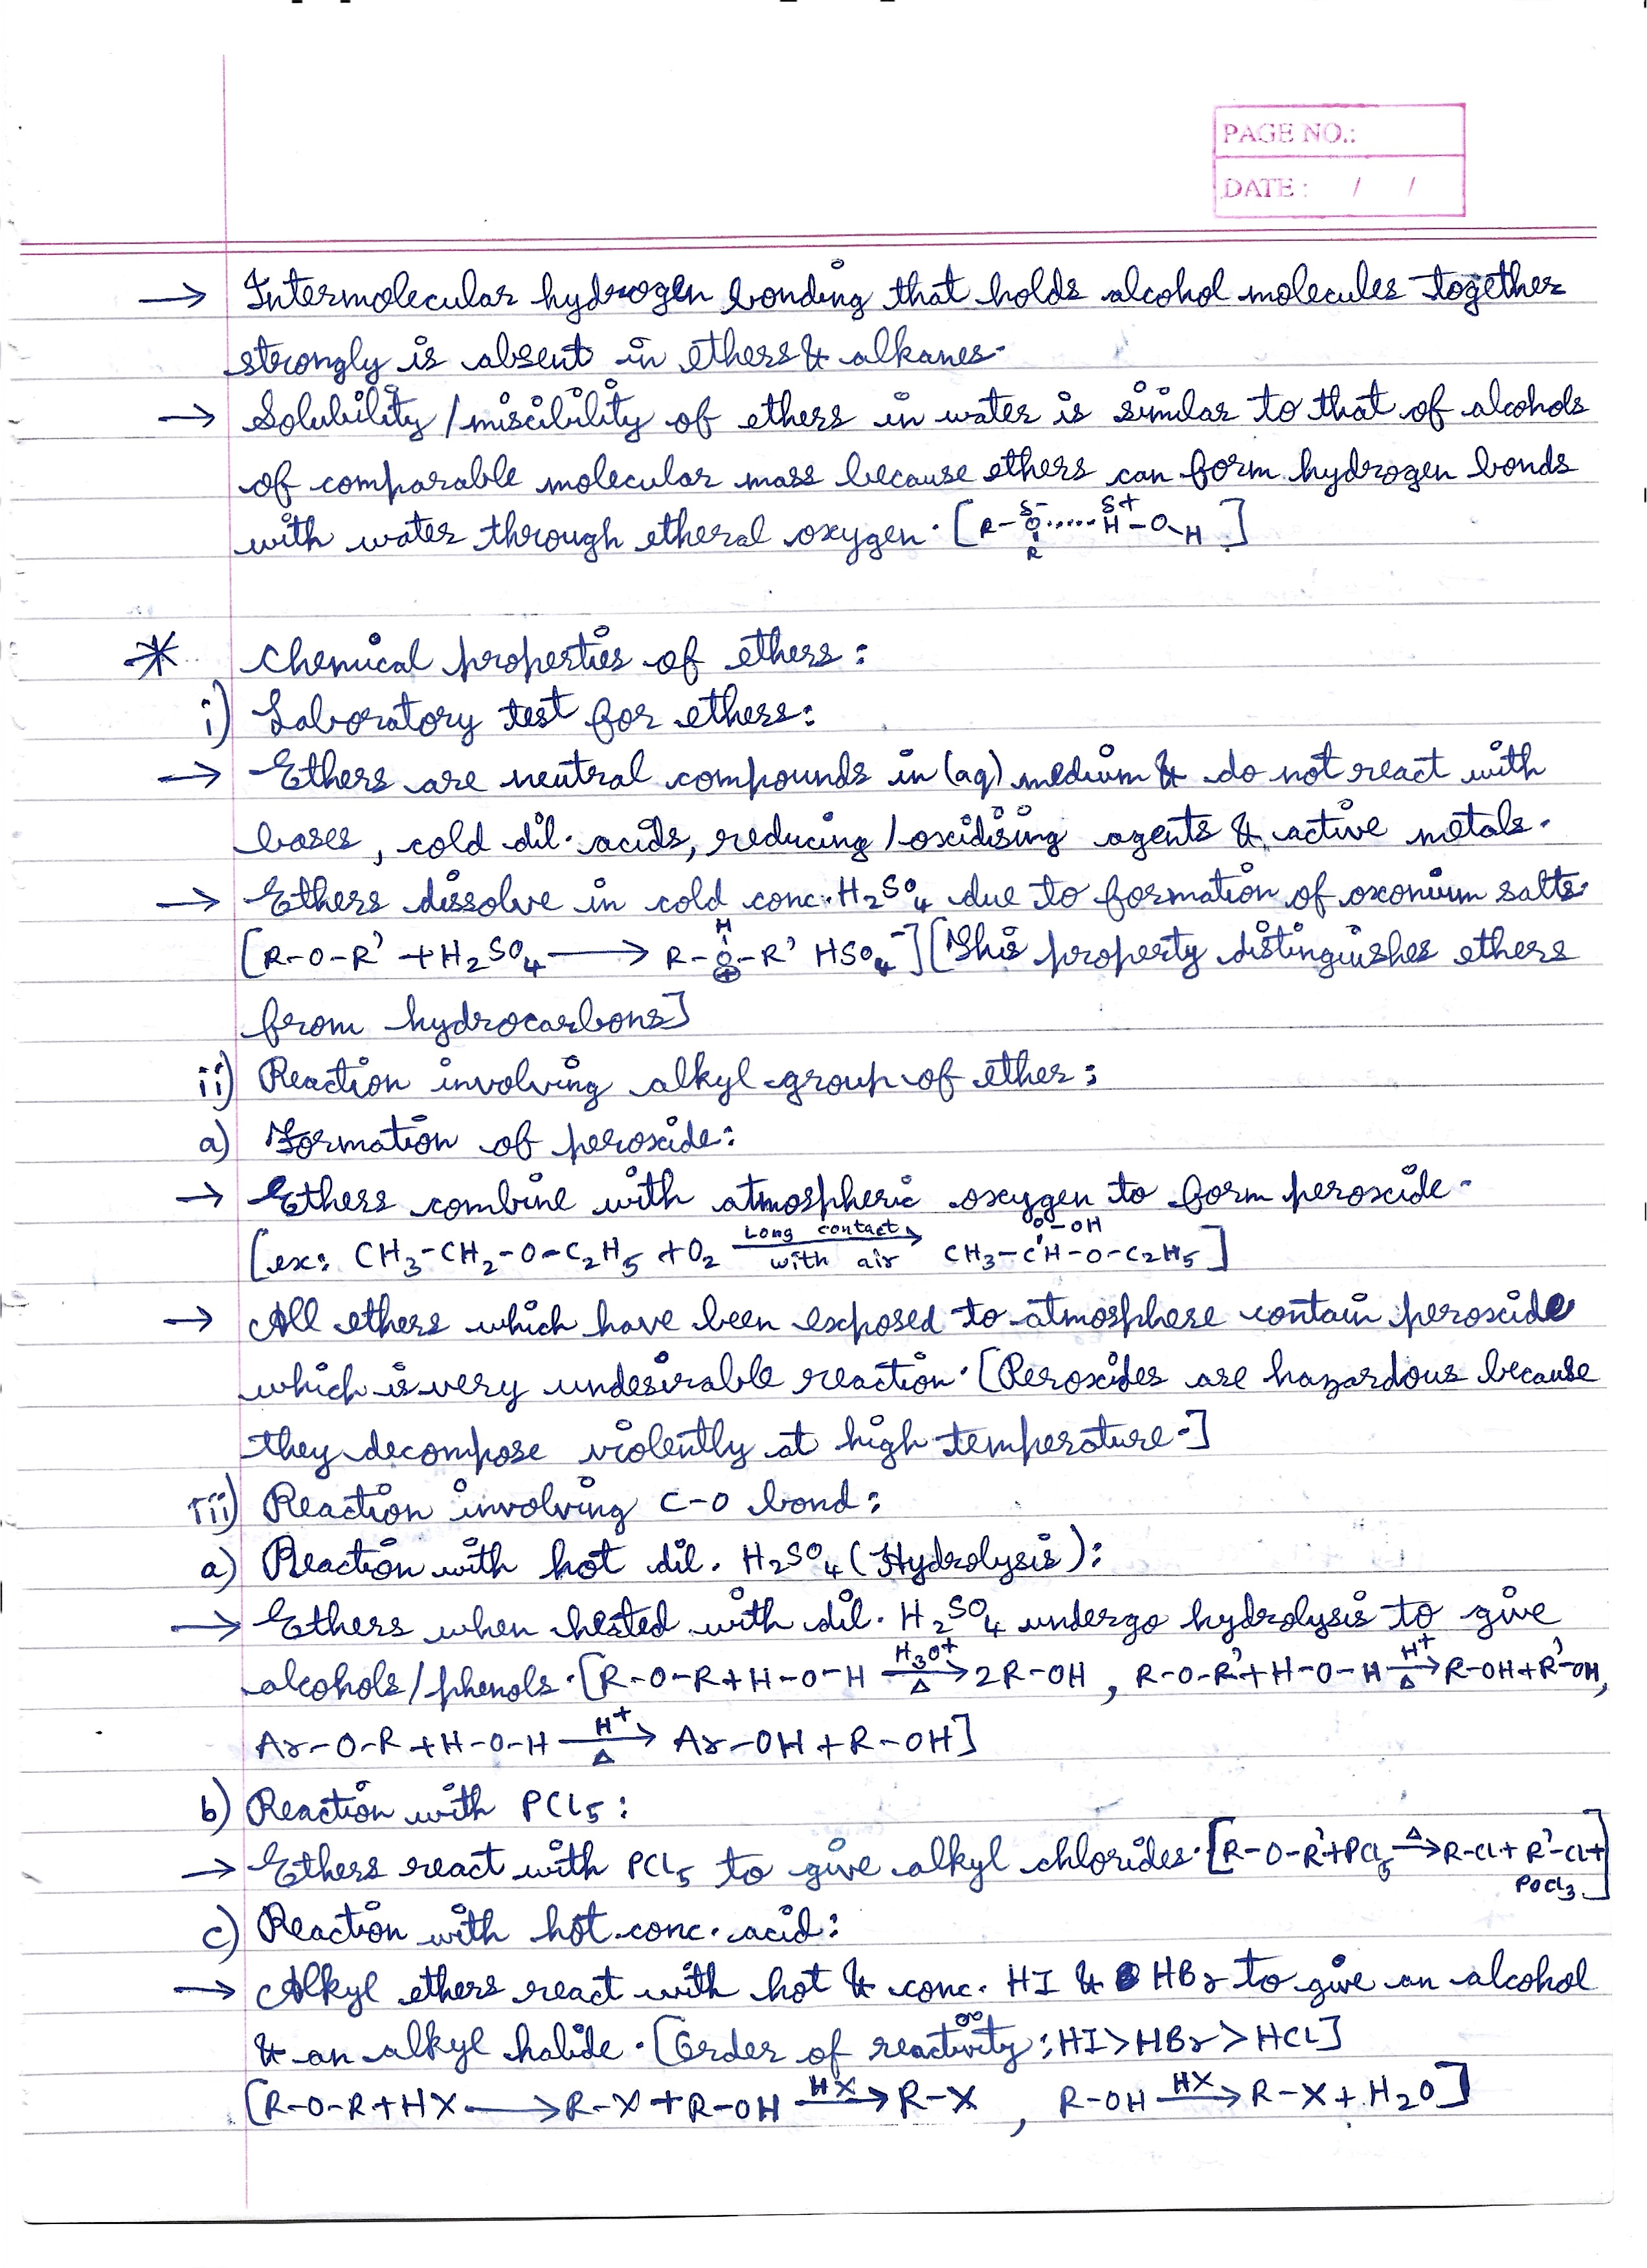 PAGE NO.:
DATE : / /
→ Intermolecular hydrogen bonding that holds alcohol molecules together
strongly is absent in ethers & alkanes.
→ Solubility/miscibility of ethers in water is similar to that of alcohols
of comparable molecular mass because ethers can form hydrogen bonds
with water through etheral oxygen. [R-O^δ-(-R)......H^δ+-O-H]
* Chemical properties of ethers:
i) Laboratory test for ethers:
→ Ethers are neutral compounds in (aq) medium & do not react with
bases, cold dil. acids, reducing/oxidising agents & active metals.
→ Ethers dissolve in cold conc. H₂SO₄ due to formation of oxonium salts.
[R-O-R' + H₂SO₄ ⟶ R-O⊕(H)-R' HSO₄⁻] [This property distinguishes ethers
from hydrocarbons]
ii) Reaction involving alkyl group of ether:
a) Formation of peroxide:
→ Ethers combine with atmospheric oxygen to form peroxide.
[ex: CH₃-CH₂-O-C₂H₅ + O₂ —Long contact with air→ CH₃-CH(O-OH)-O-C₂H₅]
→ All ethers which have been exposed to atmosphere contain peroxide
which is very undesirable reaction. [Peroxides are hazardous because
they decompose violently at high temperature.]
iii) Reaction involving C-O bond:
a) Reaction with hot dil. H₂SO₄ (Hydrolysis):
→ Ethers when heated with dil. H₂SO₄ undergo hydrolysis to give
alcohols/phenols. [R-O-R + H-O-H —H₃O⁺/Δ→ 2R-OH, R-O-R' + H-O-H —H⁺/Δ→ R-OH + R'-OH,
Ar-O-R + H-O-H —H⁺/Δ→ Ar-OH + R-OH]
b) Reaction with PCl₅:
→ Ethers react with PCl₅ to give alkyl chlorides. [R-O-R' + PCl₅ —Δ→ R-Cl + R'-Cl + POCl₃]
c) Reaction with hot conc. acid:
→ Alkyl ethers react with hot & conc. HI & HBr to give an alcohol
& an alkyl halide. [Order of reactivity: HI > HBr > HCl]
[R-O-R + HX ⟶ R-X + R-OH —HX→ R-X, R-OH —HX→ R-X + H₂O]